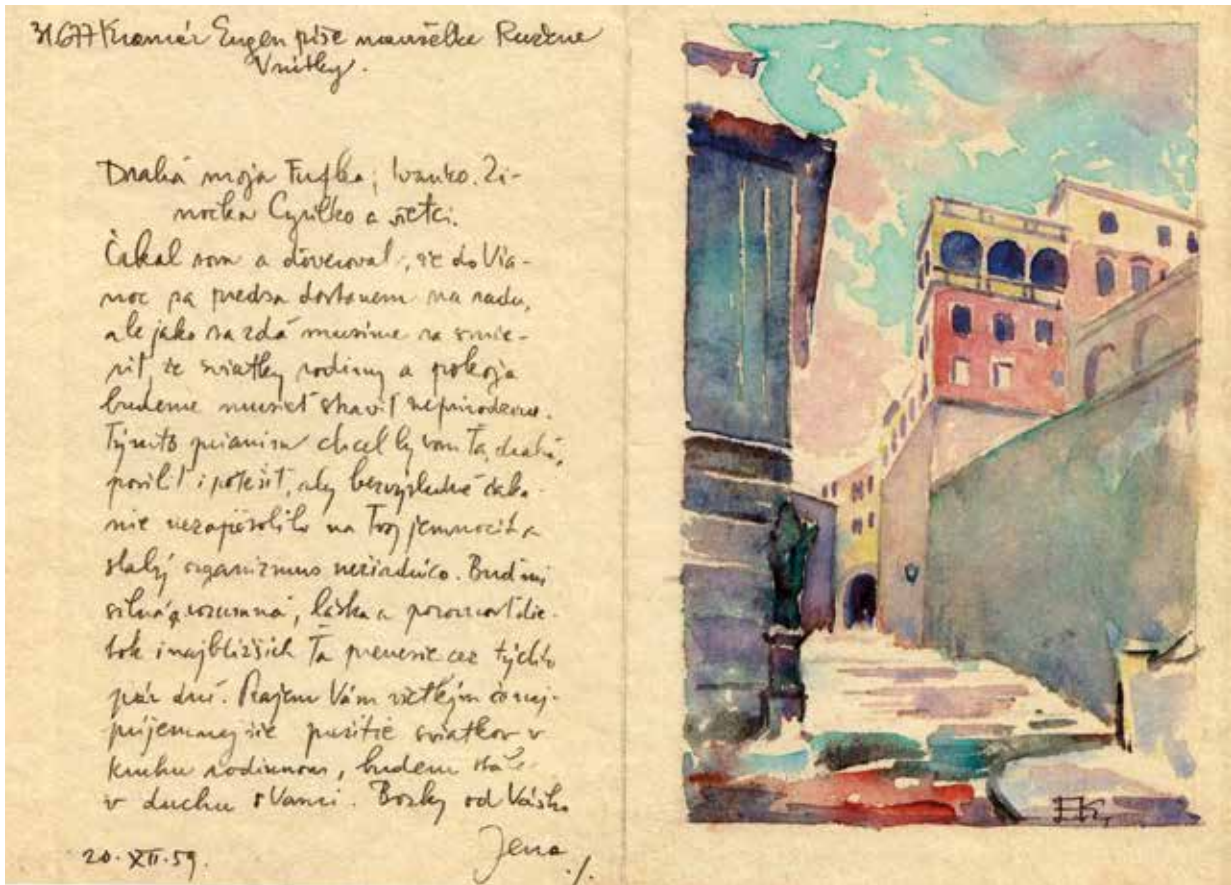 31677 Kramár Eugen píše manželke Ružene
Vnútky.
Drahá moja Fufka, Ivanko. Zi-
nočka Cyrilko a všetci.
Čakal som a dôveroval, že do Via-
noc sa predsa dostanem na radu,
ale jako sa zdá musíme sa smie-
riť, že sviatky rodiny a pokoja
budeme musieť stráviť neprirodzene.
Týmto písaním chcel by som Ťa, drahá,
posilť i potešiť, aby bezvýsledné čaka-
nie nezapôsobilo na Tvoj jemnocit a
slabý organizmus nežiadúco. Buď mi
silná, rozumná, láska a pozornosť die-
tok i najbližších Ťa prenesie cez týchto
pár dní. Prajem Vám všetkým čo naj-
príjemnejšie prežitie sviatkov v
kruhu rodinnom, budem stále
v duchu s Vami. Bozky od Vášho
Jena
20.XII.59.
EK.